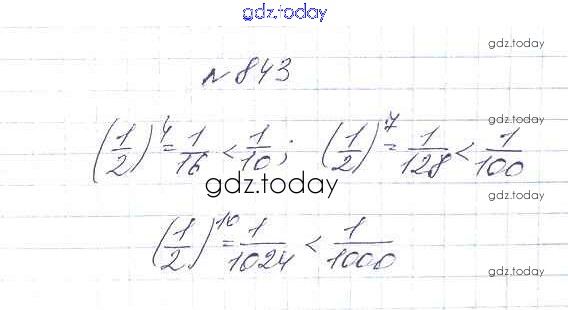 gdz.today
gdz.today
№ 843
(1/2)^4 = 1/16 < 1/10; (1/2)^7 = 1/128 < 1/100
gdz.today
(1/2)^10 = 1/1024 < 1/1000
gdz.today